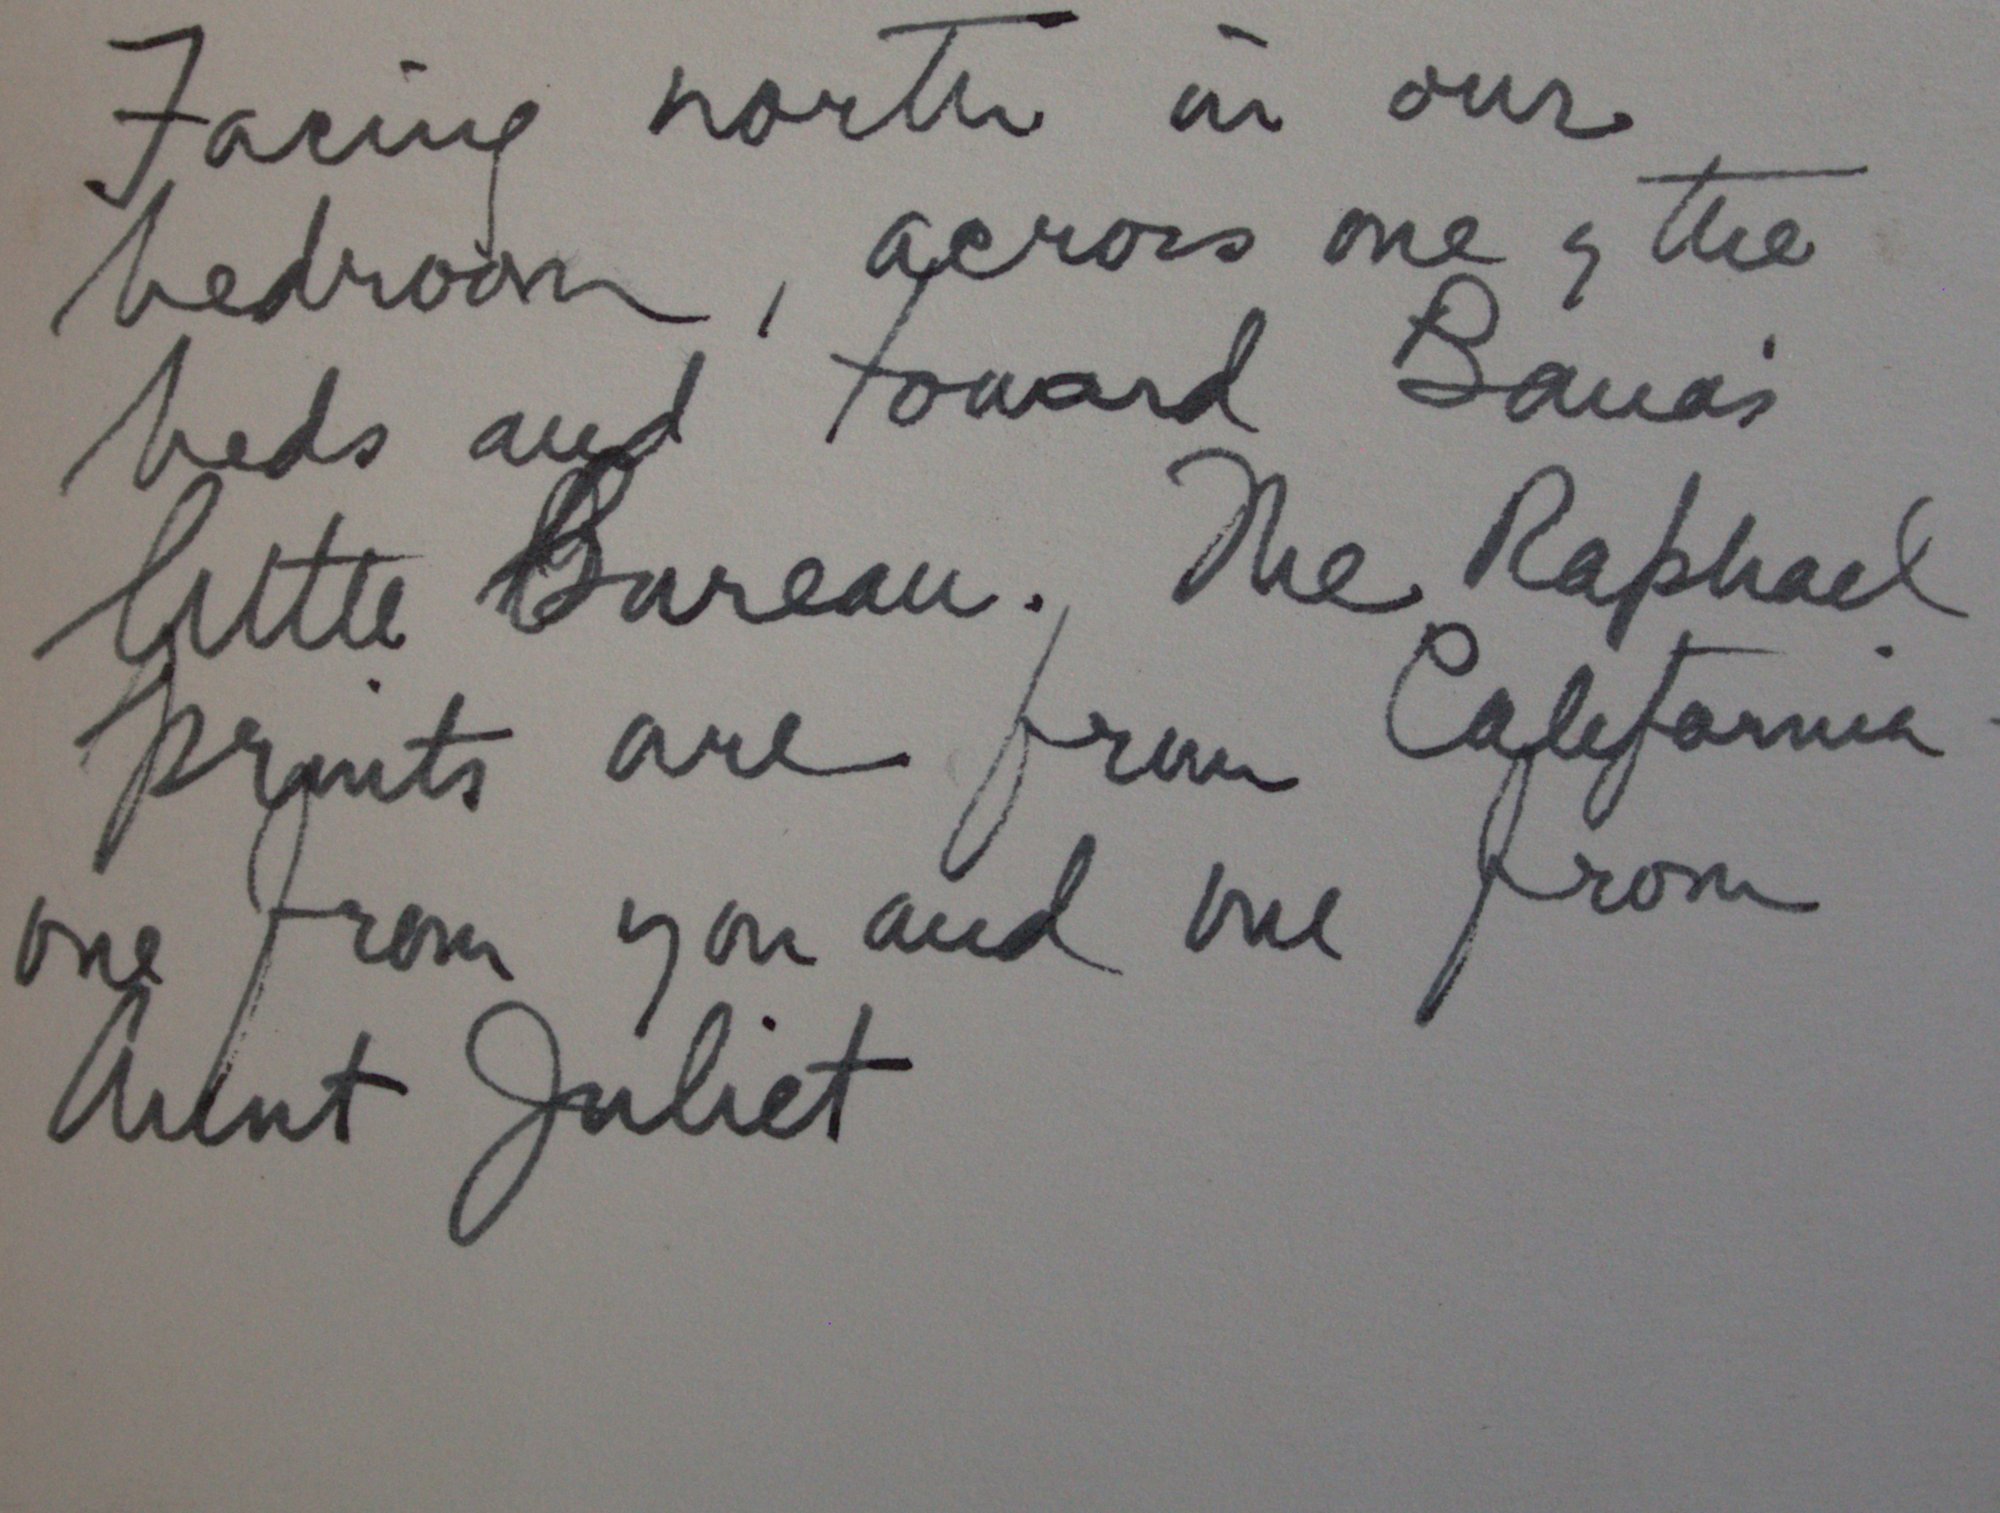 Facing north in our
bedroom, across one of the
beds and toward Bama's
little Bureau. The Raphael
prints are from California -
one from you and one from
Aunt Juliet